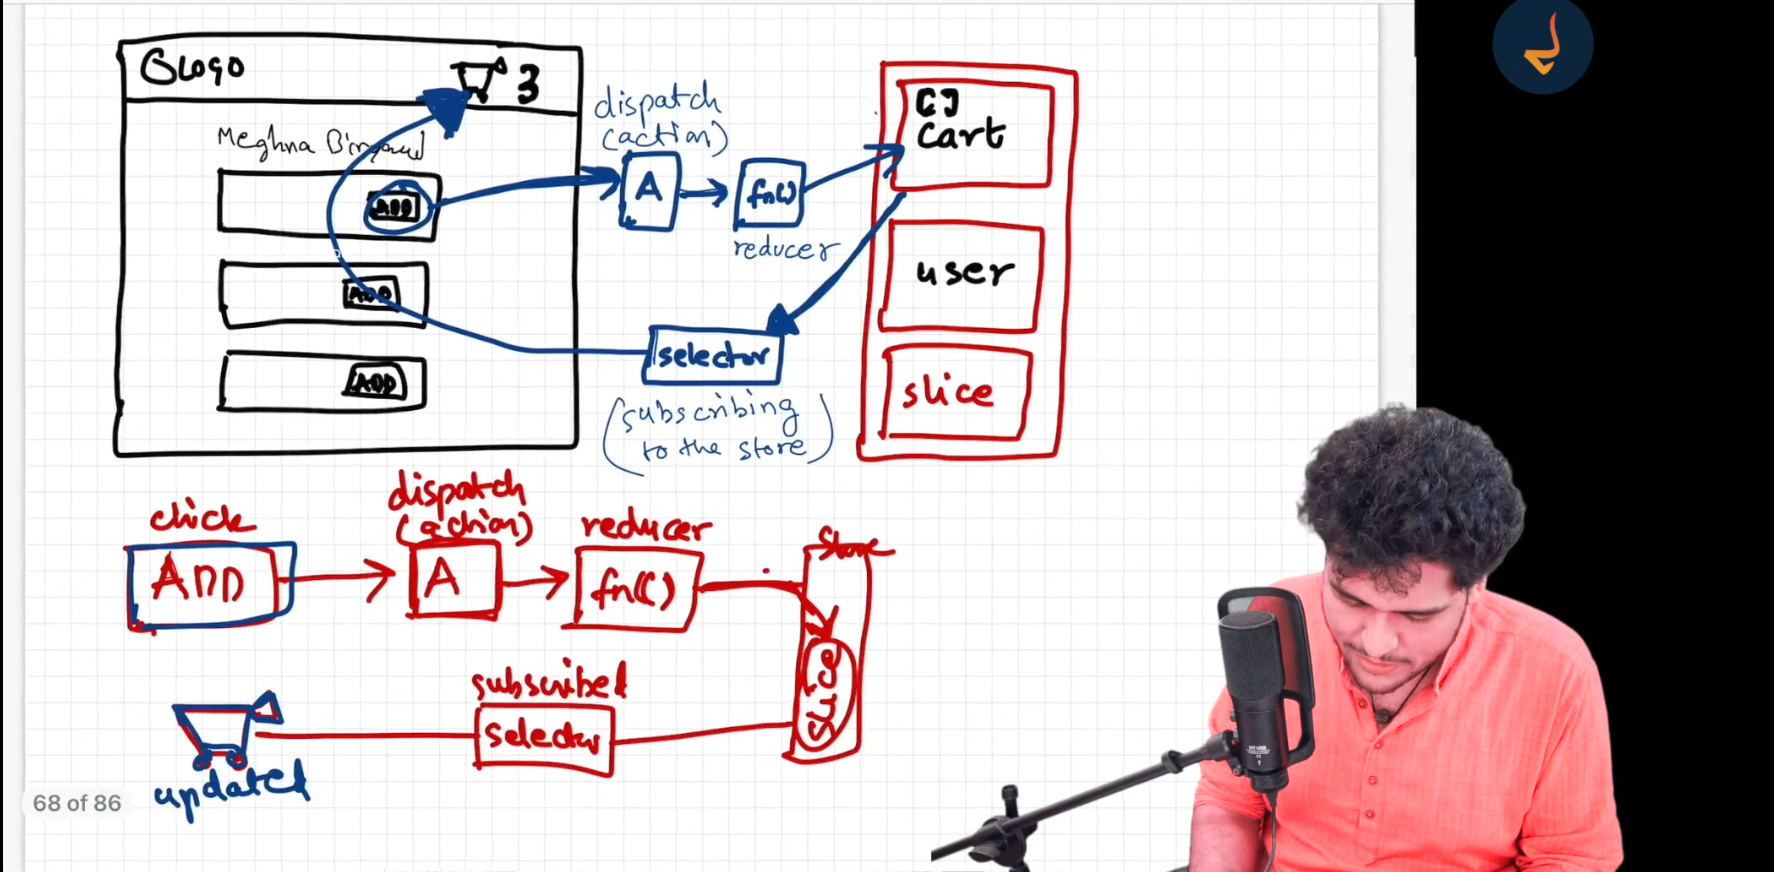 Logo
3
Meghna Biryani
ADD
ADD
ADD
dispatch
(action)
A
fn()
reducer
selector
(subscribing
to the store)
[]
Cart
user
slice
click
ADD
dispatch
(action)
A
reducer
fn()
Store
slice
subscribed
selector
updated
68 of 86